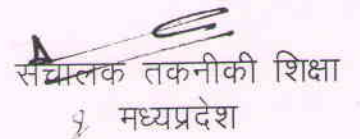 संचालक तकनीकी शिक्षा
मध्यप्रदेश